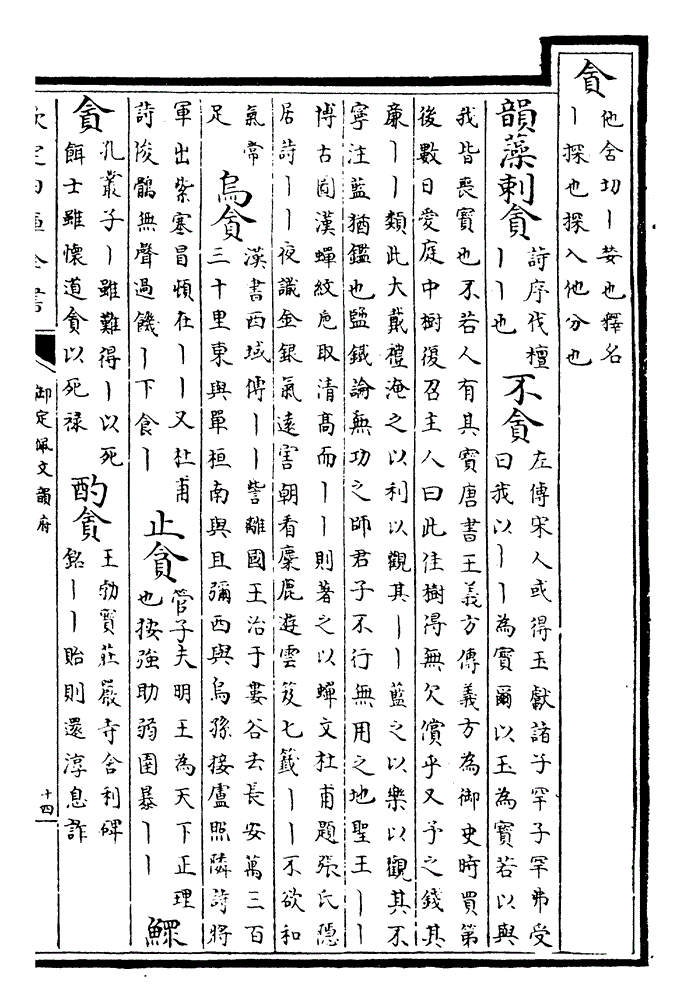 貪
他含切丨婪也釋名
丨探也探入他分也
韻藻刺貪
詩序伐檀
丨丨也
不貪
左傳宋人或得玉獻諸子罕子罕弗受
曰我以丨丨為寶爾以玉為寶若以與
我皆喪寶也不若人有其寶唐書王義方傳義方為御史時買第
後數日愛庭中樹復召主人曰此佳樹得無欠償乎又予之錢其
廉丨丨類此大戴禮淹之以利以觀其丨丨藍之以樂以觀其不
寧注藍猶鑑也鹽鐵論無功之師君子不行無用之地聖王丨丨
博古圖漢蟬紋巵取清髙而丨丨則著之以蟬文杜甫題張氏隱
居詩丨丨夜識金銀氣遠害朝看麋鹿遊雲笈七籤丨丨不欲和
氣常
足
烏貪
漢書西域傳丨丨訾離國王治于婁谷去長安萬三百
三十里東與單桓南與且彌西與烏孫接盧照隣詩將
軍出紫塞冒頓在丨丨又杜甫
詩浚鶻無聲過饑丨下食丨
止貪
管子夫明王為天下正理
也按強助弱圉暴丨丨
鰥
貪
孔叢子丨雖難得丨以死
餌士雖懷道貪以死祿
酌貪
王勃寶莊嚴寺舍利碑
銘丨丨貽則還淳息詐
欽定四庫全書
御定佩文韻府
十四